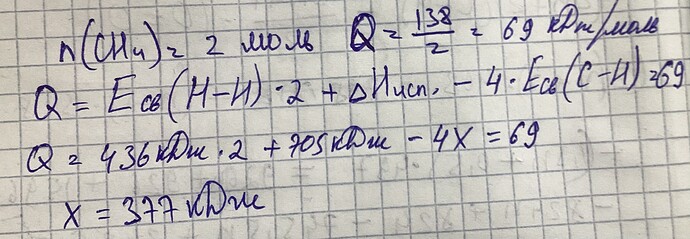 n(CH4) = 2 моль Q = 138/2 = 69 кДж/моль
Q = Eсв(H-H)·2 + ΔHисп. - 4·Eсв(C-H) = 69
Q = 436 кДж·2 + 705 кДж - 4X = 69
X = 377 кДж